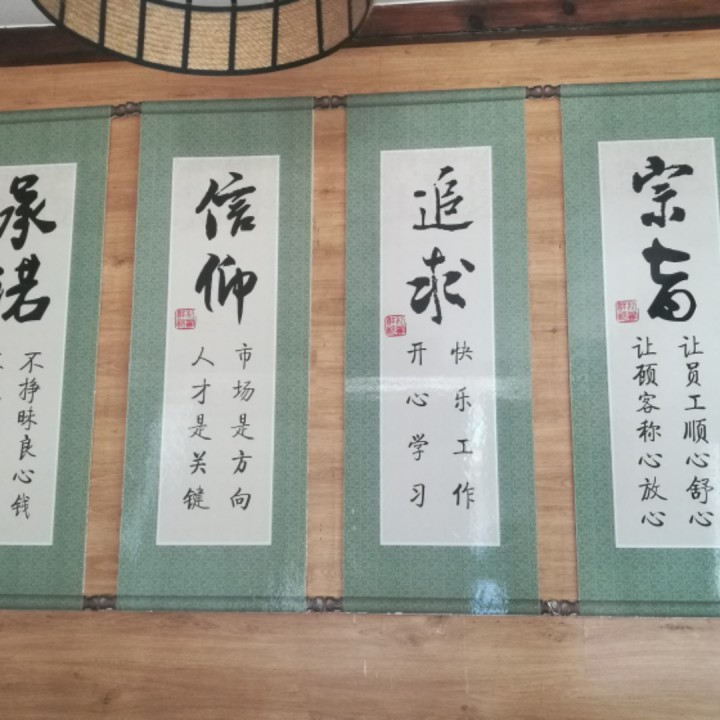 宗旨
让员工顺心舒心
让顾客称心放心
追求
快乐工作
开心学习
信仰
市场是方向
人才是关键
承诺
不挣昧良心钱